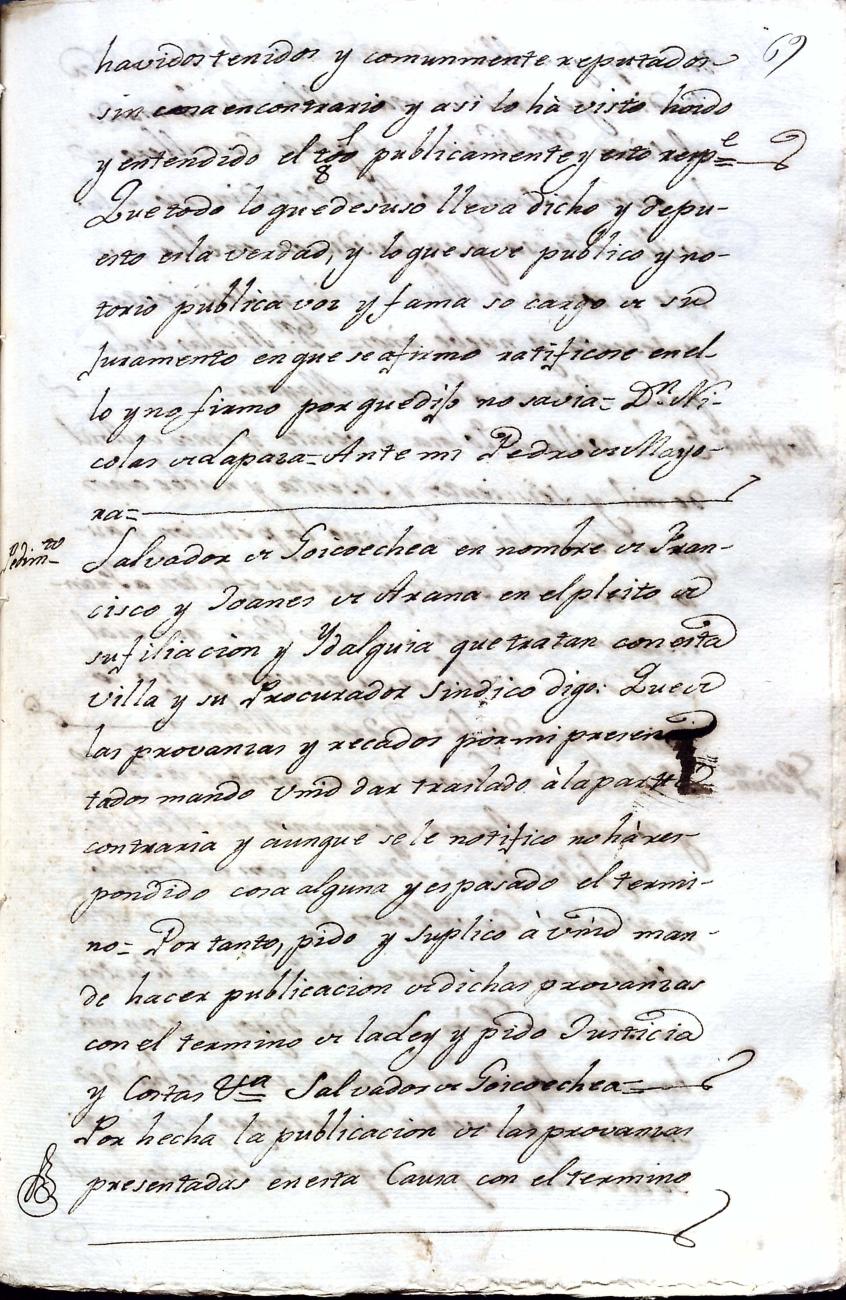 69
havidos tenidos y comunmente reputados
sin cosa en contrario y asi lo hà visto hoido
y entendido el tòo publicamente y esto respe=
8
Que todo lo que desuso lleva dicho y depu-
esto es la verdad, y lo que save publico y no-
torio publica voz y fama so cargo de su
Juramento en que se afirmo ratificose en el-
lo y no firmo por que dijo no savia= Dn. Ni-
colas de Lapaza= Ante mi Pedro de Mayo-
ra=
Pedimto
Salvador de Goicoechea en nombre de Fran-
cisco y Joanes de Arana en el pleito de
su filiacion y Ydalguia que tratan con esta
villa y su Procurador Sindico digo: Que de
las provanzas y recados por mi presen
tados mando vmd dar traslado à la parte
contraria y àunque se le notifico no hà res-
pondido cosa alguna y es pasado el termi-
no= Por tanto, pido y suplico à vmd man-
de hacer publicacion de dichas provanzas
con el termino de la Ley y pido Justicia
y Costas &a Salvador de Goicoechea=
Por hecha la publicacion de las provanzas
presentadas en esta Causa con el termino